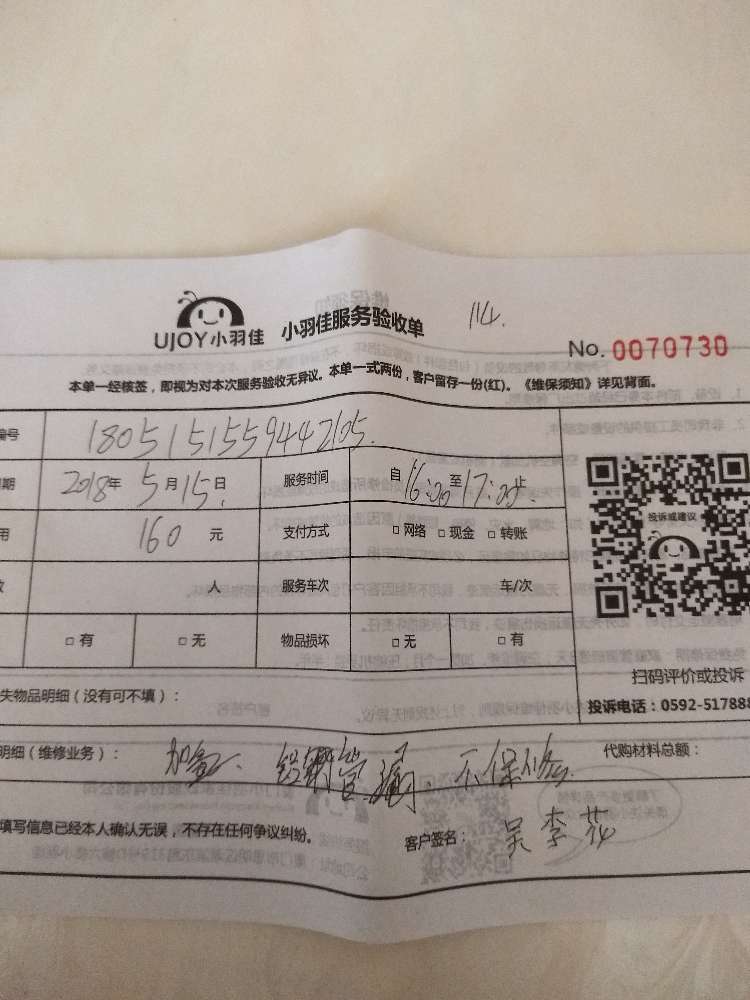 UJOY小羽佳 小羽佳服务验收单 114.
No. 0070730
本单一经核签，即视为对本次服务验收无异议。本单一式两份，客户留存一份(红)。《维保须知》详见背面。
编号 1805151559442105.
期 2018年5月15日 服务时间 自16:00至17:00止
用 160元 支付方式 □网络 □现金 □转账
人 服务车次 车/次
□有 □无 物品损坏 □无 □有
投诉或建议
扫码评价或投诉
失物品明细（没有可不填）：
投诉电话：0592-517888
明细（维修业务）： 加氟、铝铜管漏、不保修 代购材料总额：
填写信息已经本人确认无误，不存在任何争议纠纷。
客户签名： 吴李花